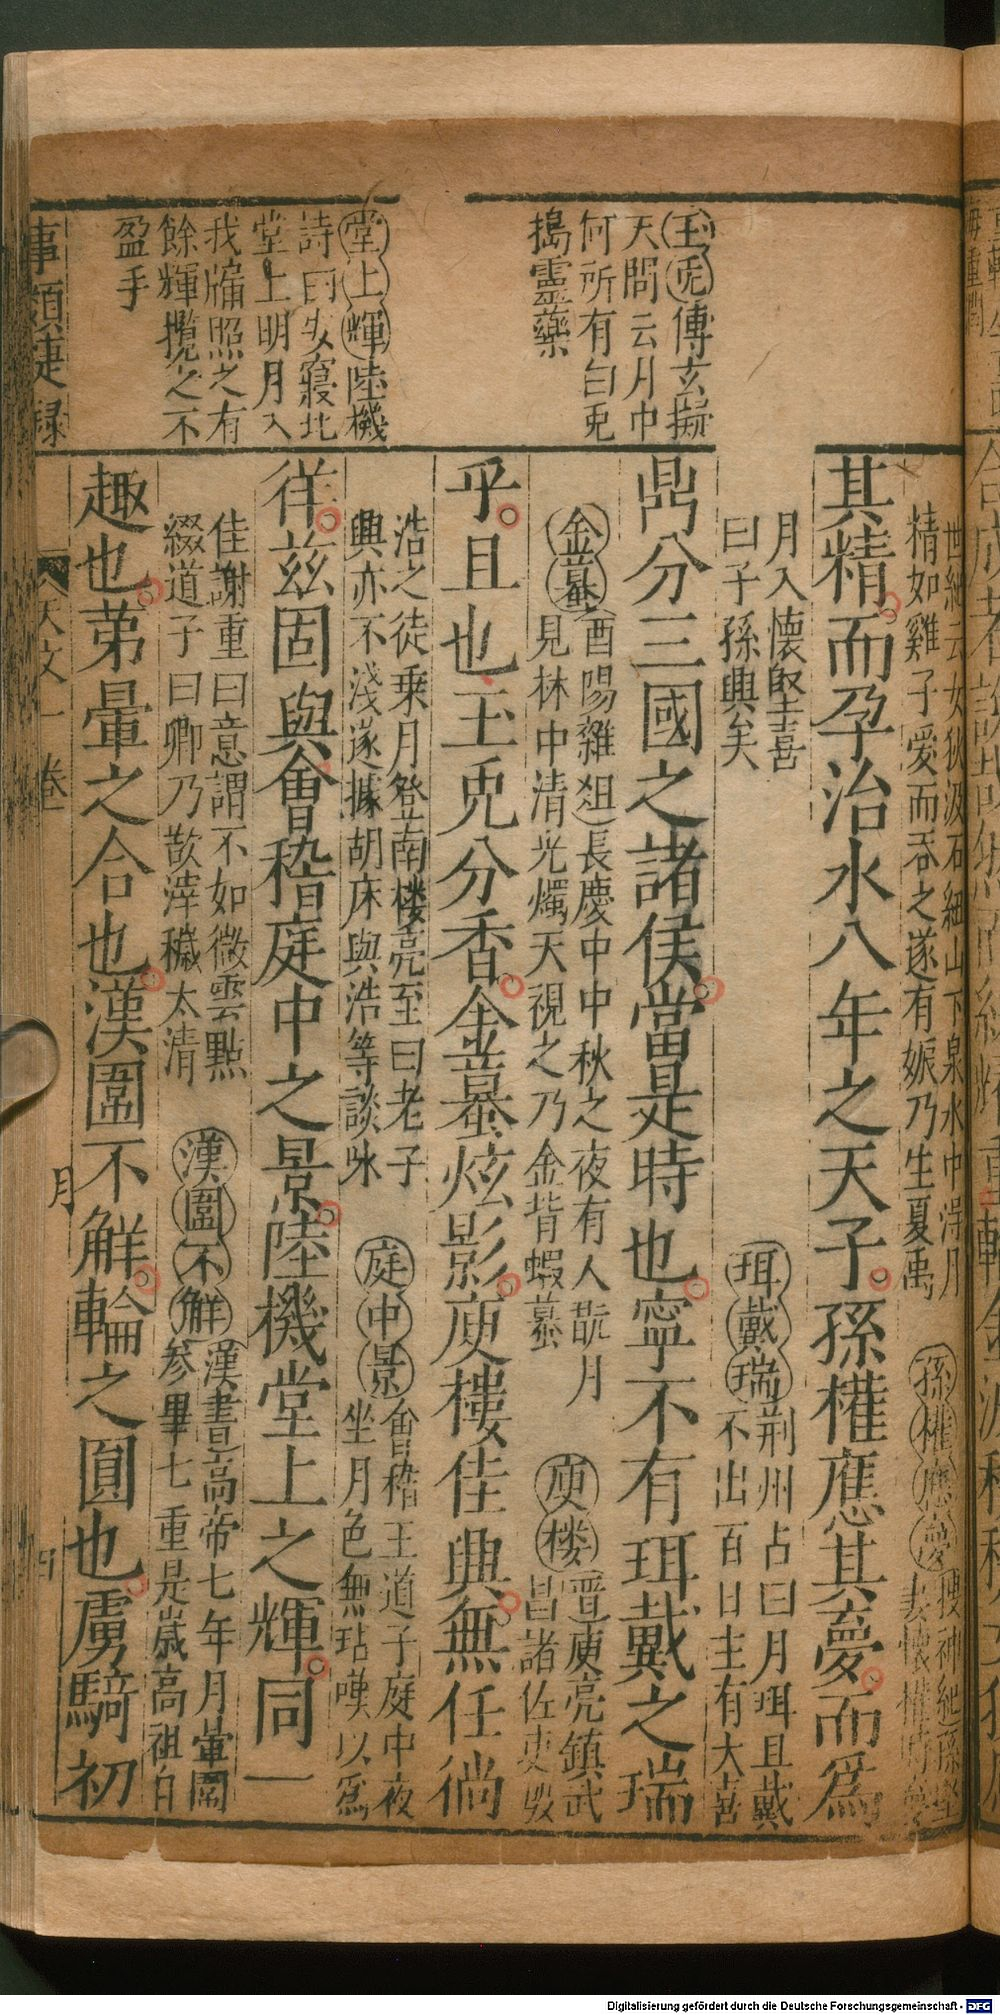 玉兎傳玄擬
天問云月中
何所有白兎
搗靈藥
堂上輝陸機
詩曰安寢北
堂上明月入
我牖照之有
餘輝攬之不
盈手
世紀云女狄汲石紐山下泉水中得月
精如雞子愛而吞之遂有娠乃生夏禹
孫權應夢搜神紀孫堅
妻懷權時夢
其精而孕治水八年之天子孫權應其夢而爲
月入懷堅喜
曰子孫興矣
珥戴瑞荆州占曰月珥且戴
不出百日主有大喜
鼎分三國之諸侯當是時也寧不有珥戴之瑞
金蟇酉陽雜俎長慶中中秋之夜有人翫月
見林中清光燭天視之乃金背蝦蟇
庾楼晋庾亮鎮武
昌諸佐吏殷
乎且也玉兎分香金蟇炫影庾樓佳興無任徜
浩之徒乗月登南楼亮至曰老子
興亦不淺遂據胡床與浩等談咏
庭中景會稽王道子庭中夜
坐月色無玷嘆以爲
徉茲固與會稽庭中之景陸機堂上之輝同一
佳謝重曰意謂不如微雲點
綴道子曰卿乃敢滓穢太清
漢圍不觧漢書高帝七年月暈圍
參畢七重是歲高祖自
趣也苐暈之合也漢圍不觧輪之圓也虜騎初
事類捷録
天文一卷
月
四
Digitalisierung gefördert durch die Deutsche Forschungsgemeinschaft - DFG